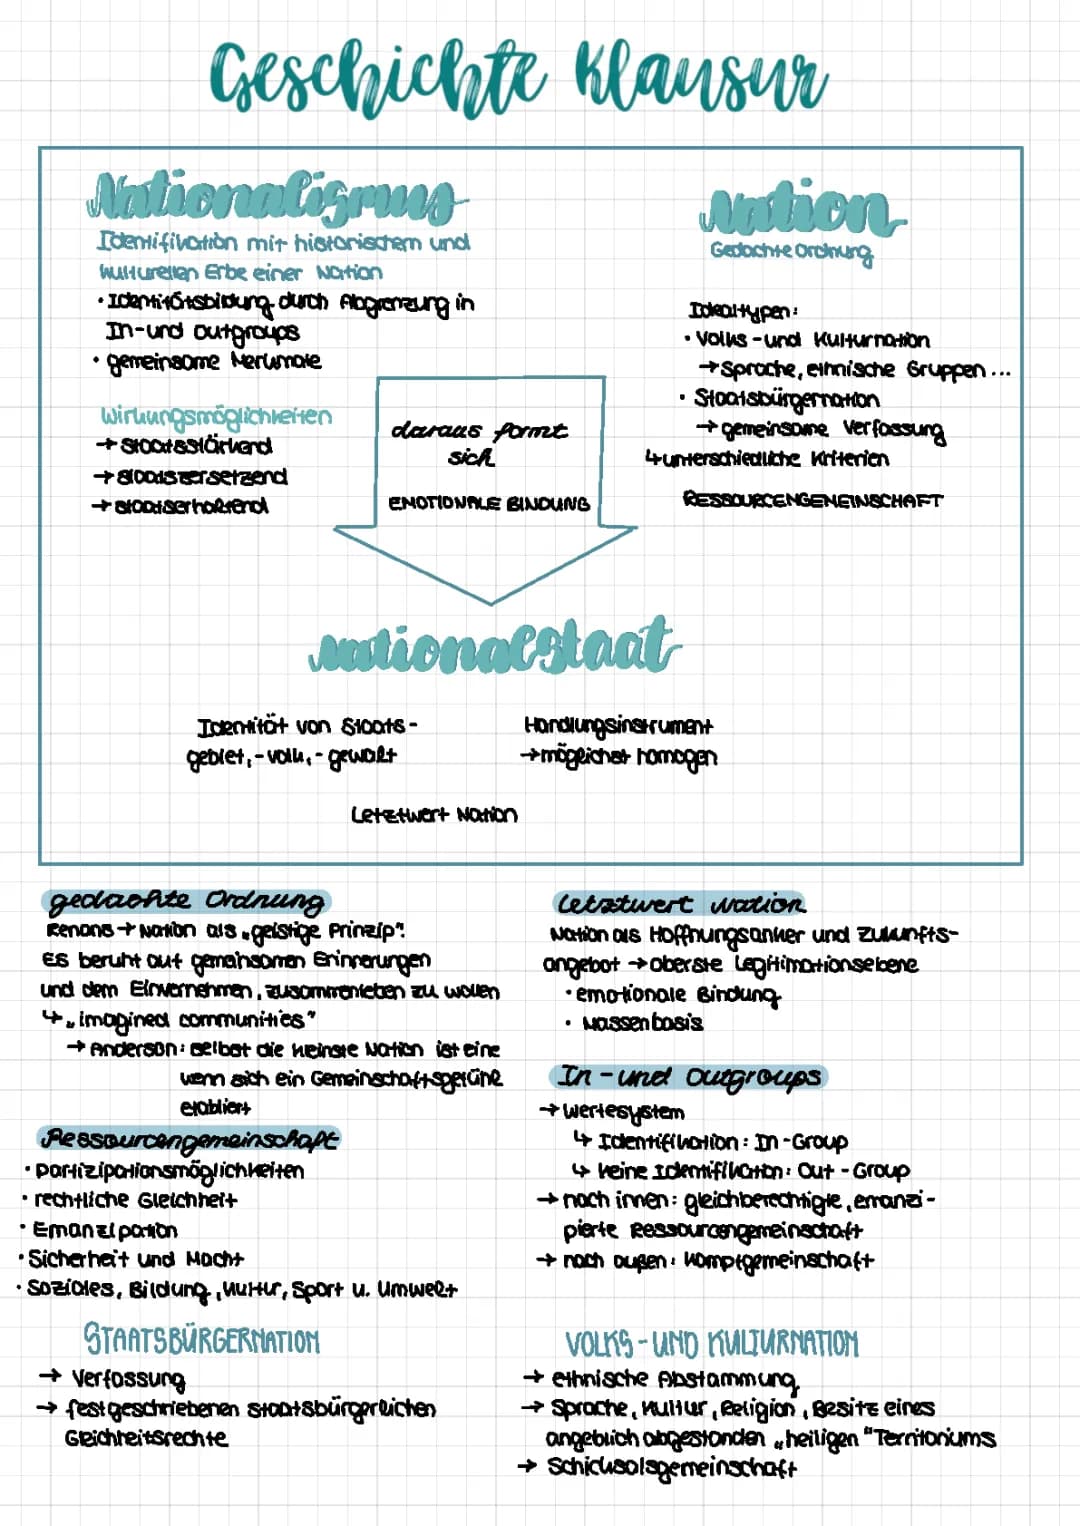 Geschichte Klausur
Nationalismus
Identifikation mit historischem und
kulturellen Erbe einer Nation
• Identitätsbildung durch Abgrenzung in
In-und outgroups
• gemeinsame Merkmale
Wirkungsmöglichkeiten
→ staatsstärkend
→ staatszersetzend
→ staatserhaltend
daraus formt
sich
EMOTIONALE BINDUNG
Nation
Gedachte Ordnung
Idealtypen:
• Volks-und Kulturnation
→ Sprache, ethnische Gruppen...
• Staatsbürgernation
→ gemeinsame Verfassung
↳ unterschiedliche Kriterien
RESSOURCENGEMEINSCHAFT
Nationalstaat
Identität von Staats-
gebiet,-volk,-gewalt
Handlungsinstrument
→ möglichst homogen
Letztwert Nation
gedachte Ordnung
Renans → Nation als „geistige Prinzip":
Es beruht auf gemeinsamen Erinnerungen
und dem Einvernehmen, zusammenleben zu wollen
↳ „imagined communities"
→ Anderson: selbst die kleinste Nation ist eine
wenn sich ein Gemeinschaftsgefühl
etabliert
Ressourcengemeinschaft
• Partizipationsmöglichkeiten
• rechtliche Gleichheit
• Emanzipation
• Sicherheit und Macht
• Soziales, Bildung, Kultur, Sport u. Umwelt
STAATSBÜRGERNATION
→ Verfassung
→ festgeschriebenen staatsbürgerlichen
Gleichheitsrechte
Letztwert Nation
Nation als Hoffnungsanker und Zukunfts-
angebot → oberste Legitimationsebene
• emotionale Bindung
• Massenbasis
In-und Outgroups
→ Wertesystem
↳ Identifikation: In-Group
↳ keine Identifikation: Out-Group
→ nach innen: gleichberechtigte, emanzi-
pierte Ressourcengemeinschaft
→ nach außen: Kampfgemeinschaft
VOLKS-UND KULTURNATION
→ ethnische Abstammung
→ Sprache, Kultur, Religion, Besitz eines
angeblich abgestanden „heiligen" Territoriums
→ Schicksalsgemeinschaft